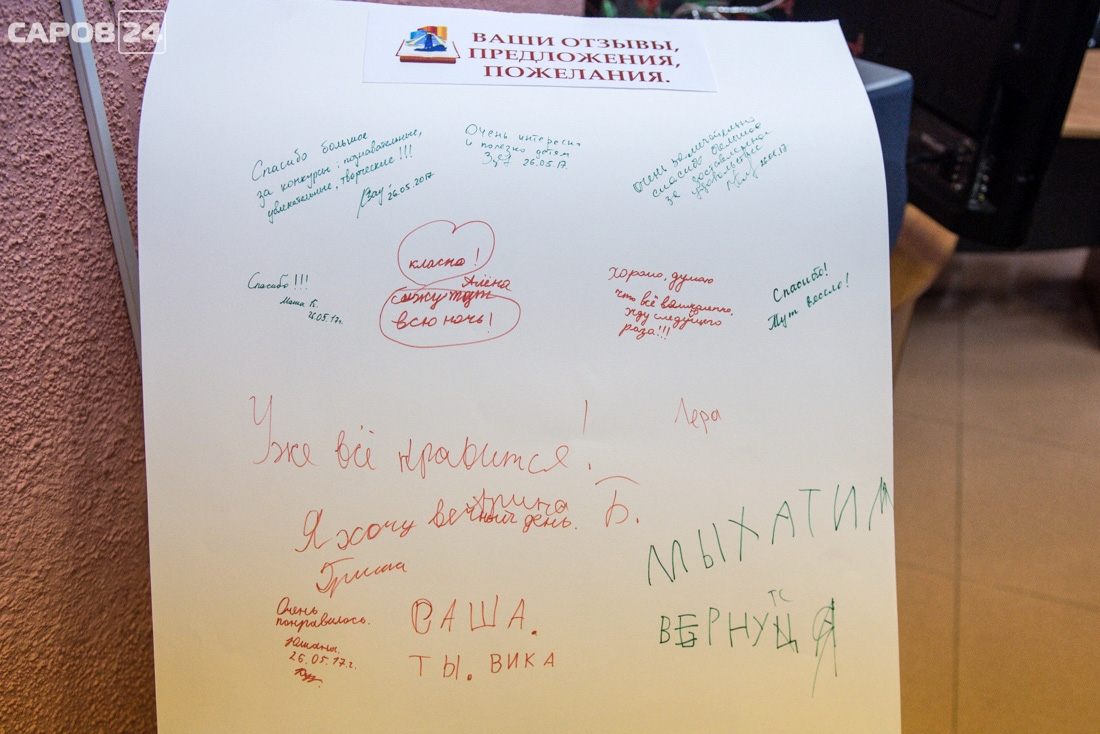 САРОВ 24
ВАШИ ОТЗЫВЫ,
ПРЕДЛОЖЕНИЯ,
ПОЖЕЛАНИЯ.
Спасибо большое
за конкурсы: познавательные,
увлекательные, творческие!!!
26.05.2017
Очень интересно
и полезно детям
26.05.17.
Очень замечательно
спасибо большое
за доставленное
удовольствие
26.05.17
Спасибо!!!
Маша К.
26.05.17г.
класно!
Алёна
сижу тут
всю ночь!
Хорошо, думаю
что всё великолепно,
жду следущего
раза!!!
Спасибо!
Тут весело!
Уже всё нравится!
Лера
Арина Б.
Я хочу вечный день.
Гриша
Очень
понравилось.
26.05.17.г.
САША.
ТЫ. ВИКА
МЫ ХАТИМ
ВЕРНУЦА
ТС